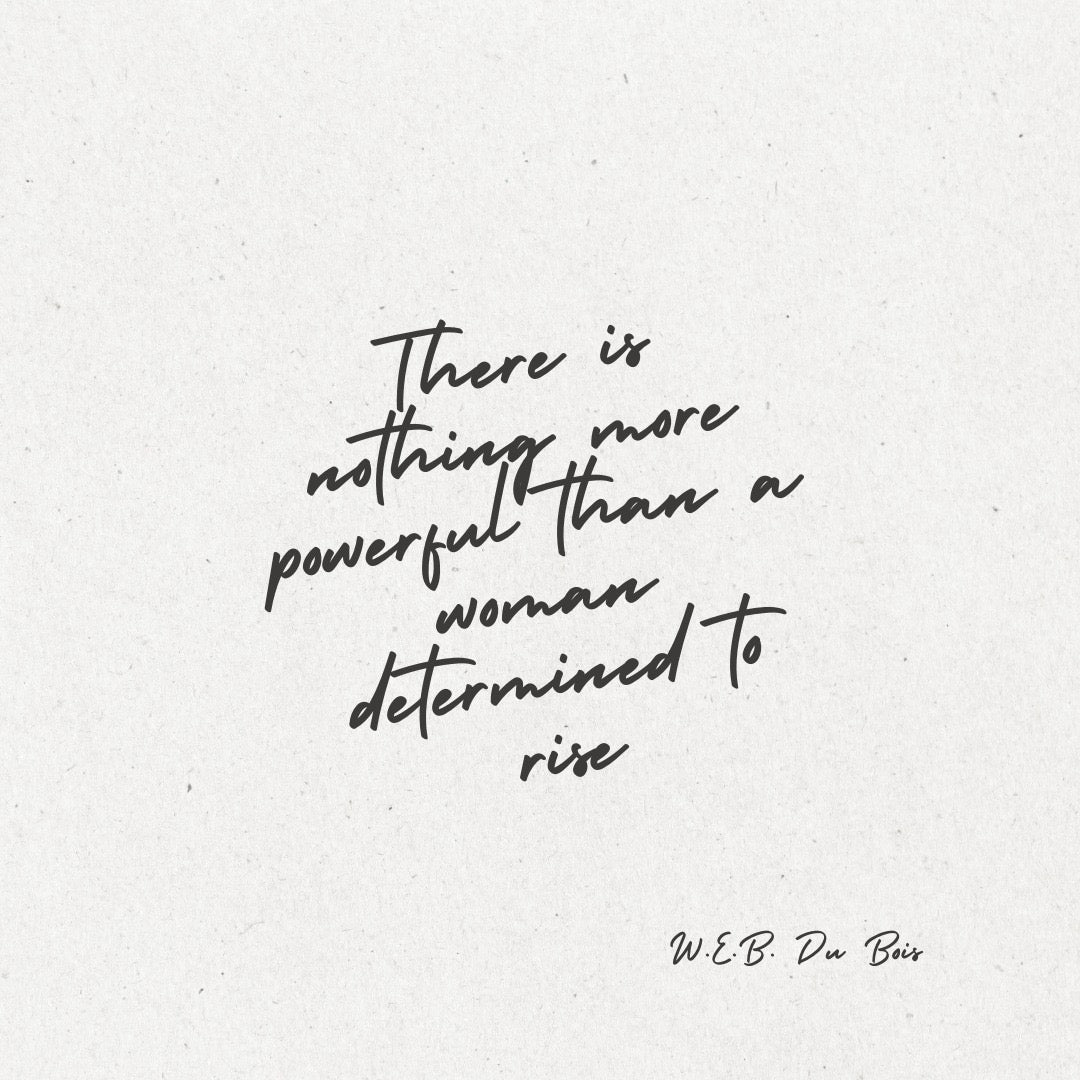 There is
nothing more
powerful than a
woman
determined to
rise
W.E.B. Du Bois